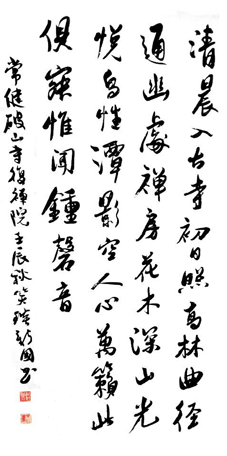 清晨入古寺初日照高林曲徑
通幽處禪房花木深山光
悅鳥性潭影空人心萬籟此
俱寂惟聞鍾磬音
常健破山寺後禪院壬辰秋國書